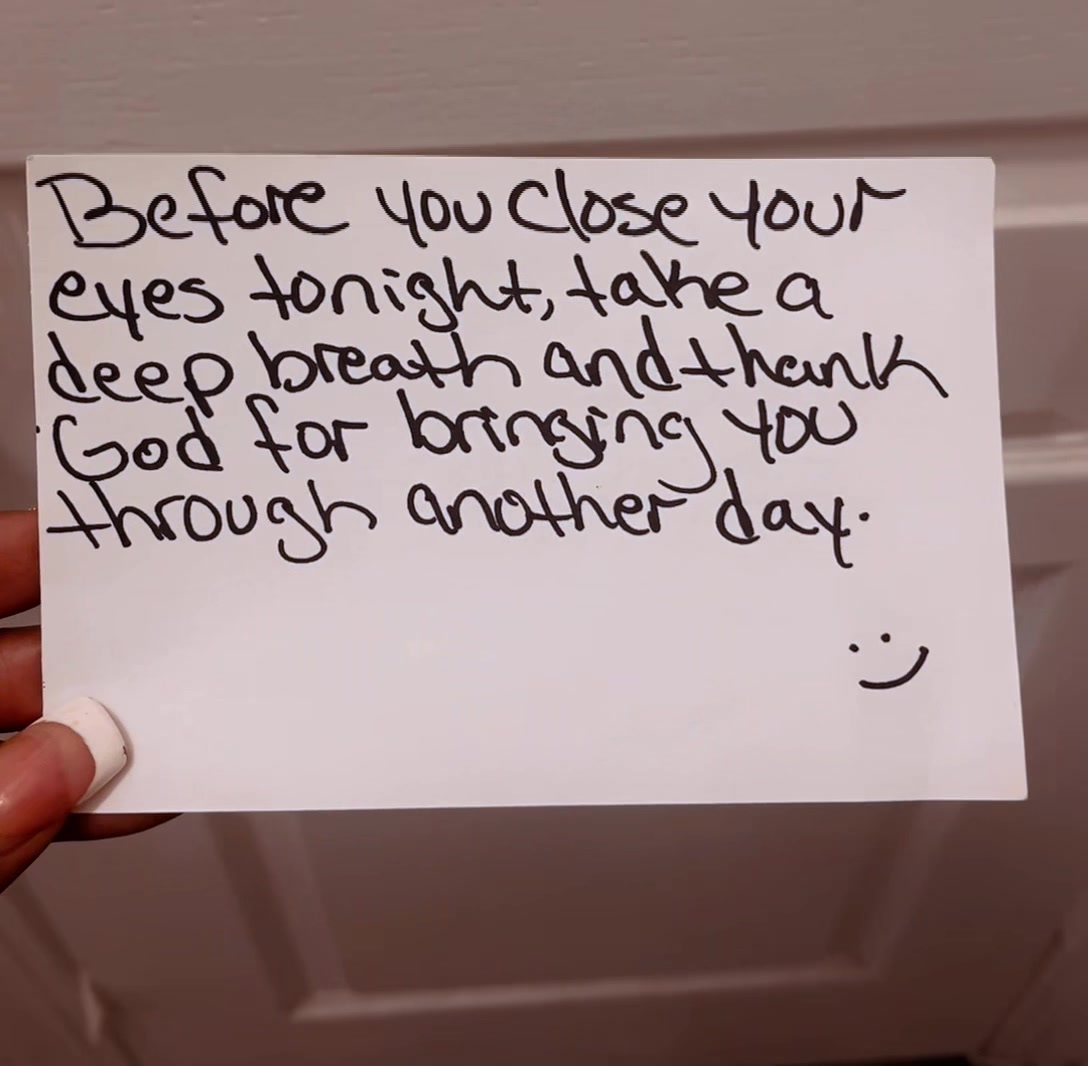 Before you close your
eyes tonight, take a
deep breath and thank
God for bringing you
through another day.